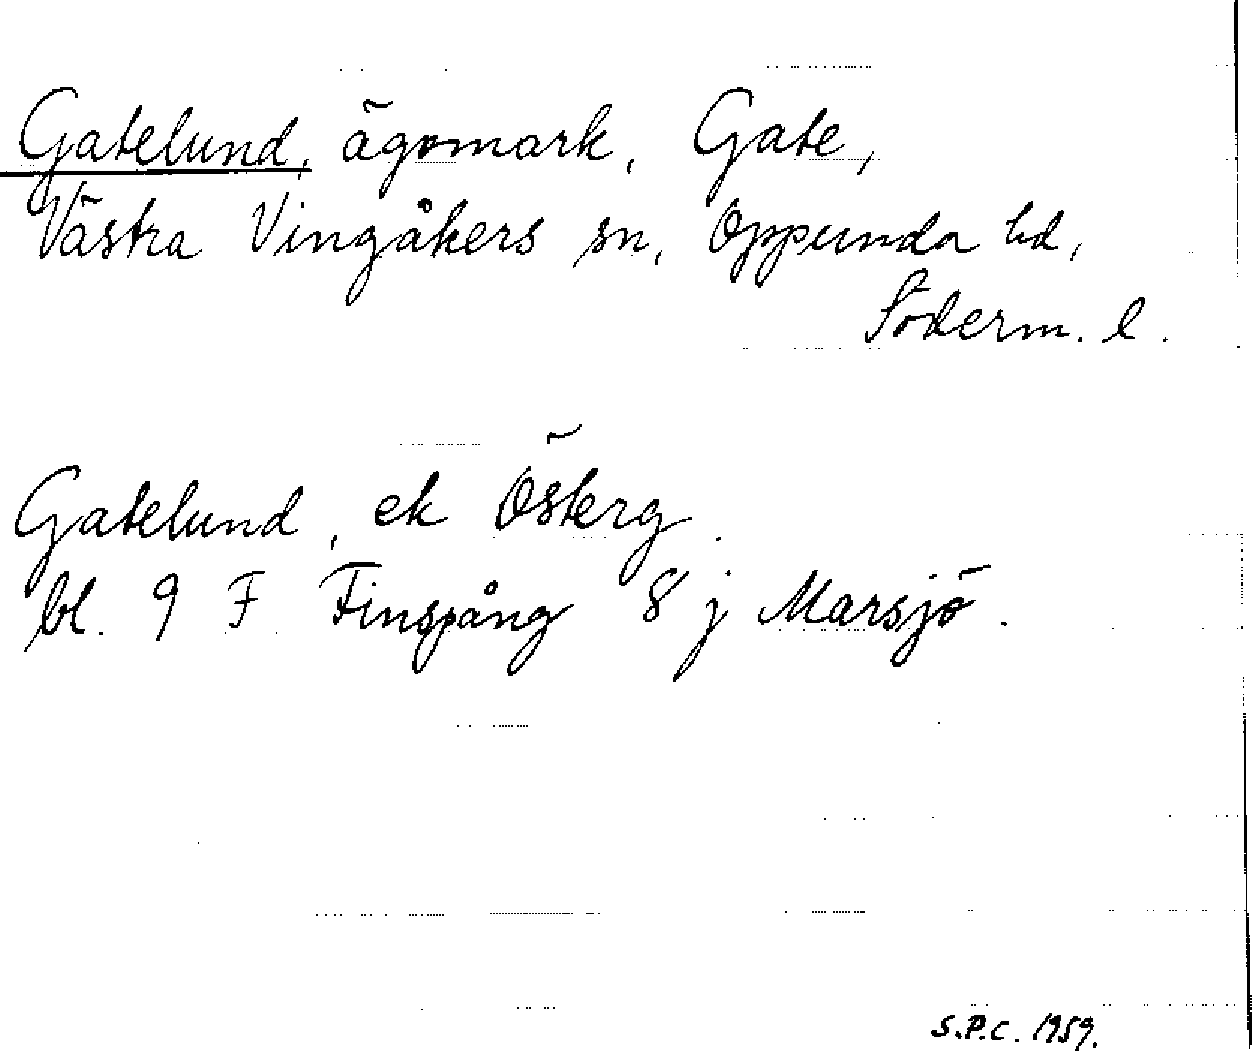 Gatelund, ägomark, Gate,
Västra Vingåkers sn, Oppunda hd,
Söderm. l.
Gatelund, ek Österg.
bl. 9 F Finspång 8 j Marsjö.
S.P.C. 1959.